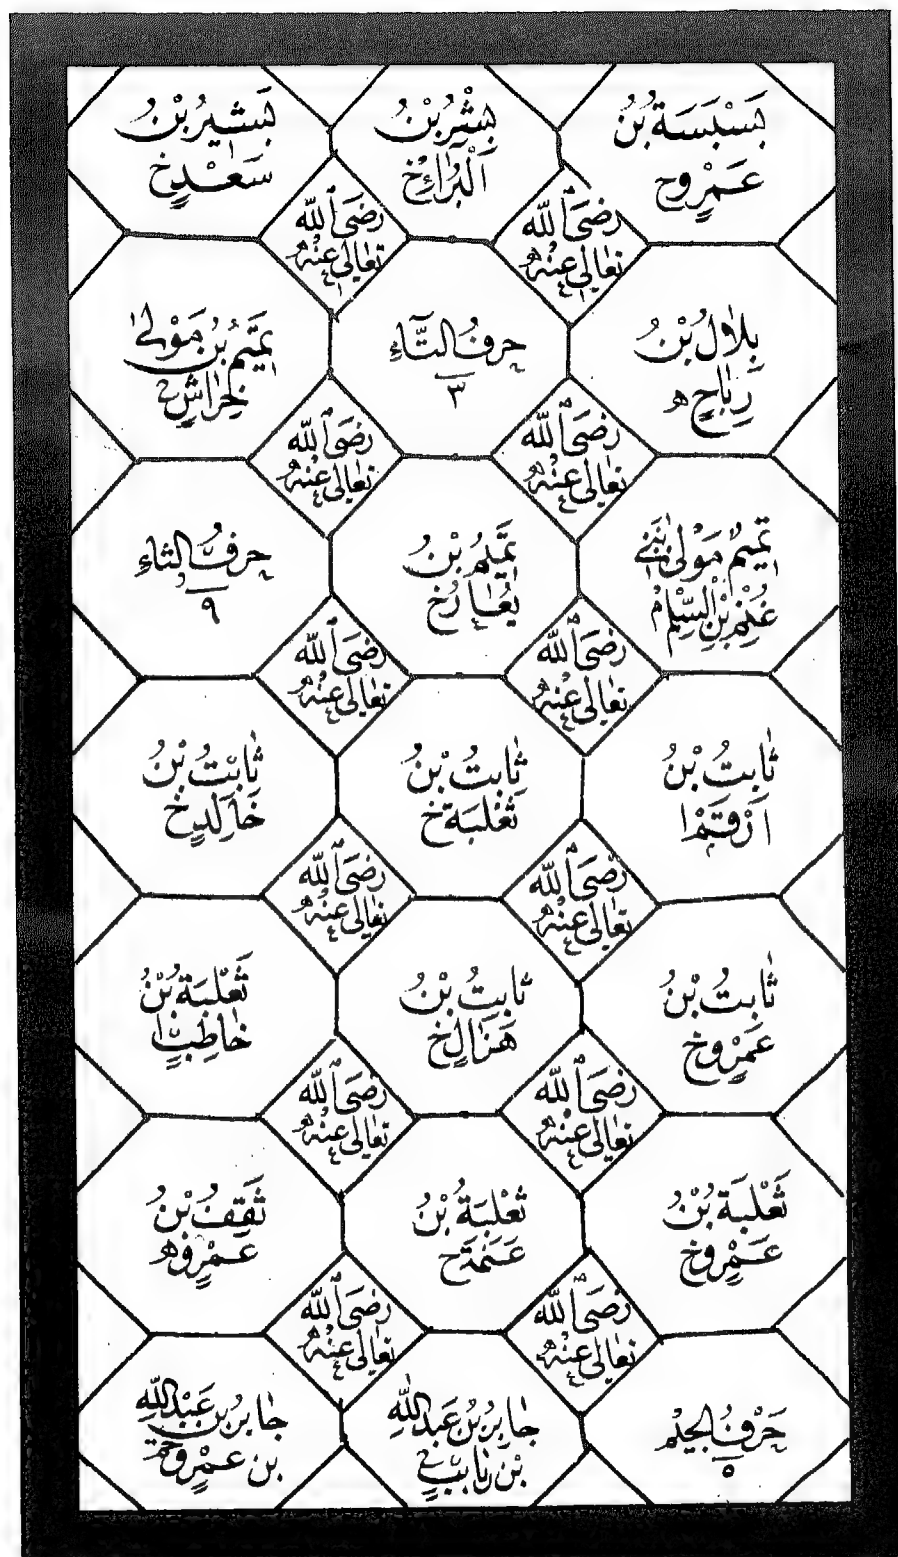 بَسْبَسَة بْنُ
عَمْرٍو ح
بِشْرُ بْنُ
الْبَرَاءِ خ
بَشِيرُ بْنُ
سَعْدٍ خ
رَضِیَ اللّٰه
تعَالیٰ عَنْهُ
رَضِیَ اللّٰه
تعَالیٰ عَنْهُ
بِلَالُ بْنُ
رَبَاحٍ ھ
حرفُ التَّاءِ
٣
تَمِيمُ بْنُ مَوْلیٰ
خِرَاشٍ
رَضِیَ اللّٰه
تعَالیٰ عَنْهُ
رَضِیَ اللّٰه
تعَالیٰ عَنْهُ
تَمِيمٌ مَوْلیٰ بَنِي
غُنْمِ بْنِ السِّلْمِ
تَمِيمُ بْنُ
يُعَارٍ خ
حرفُ الثاءِ
٩
رَضِیَ اللّٰه
تعَالیٰ عَنْهُ
رَضِیَ اللّٰه
تعَالیٰ عَنْهُ
ثَابِتُ بْنُ
اَرْقَمْ ا
ثَابِتُ بْنُ
ثَعْلَبَةَ خ
ثَابِتُ بْنُ
خَالِدٍ خ
رَضِیَ اللّٰه
تعَالیٰ عَنْهُ
رَضِیَ اللّٰه
تعَالیٰ عَنْهُ
ثَابِتُ بْنُ
عَمْرٍو خ
ثَابِتُ بْنُ
هَزَالٍ خ
ثَعْلَبَةُ بْنُ
حَاطِبٍ ا
رَضِیَ اللّٰه
تعَالیٰ عَنْهُ
رَضِیَ اللّٰه
تعَالیٰ عَنْهُ
ثَعْلَبَةُ بْنُ
عَمْرٍو خ
ثَعْلَبَةُ بْنُ
عَنَمَةَ ح
ثَقِفُ بْنُ
عَمْرٍو ھ
رَضِیَ اللّٰه
تعَالیٰ عَنْهُ
رَضِیَ اللّٰه
تعَالیٰ عَنْهُ
حَرْفُ الجِيْم
٥
جَابِرُ بْنُ عَبْدِ اللّٰهِ
بْنِ
جَابِرُ بْنُ عَبْدِ اللّٰهِ
بن عَمْرٍو خ